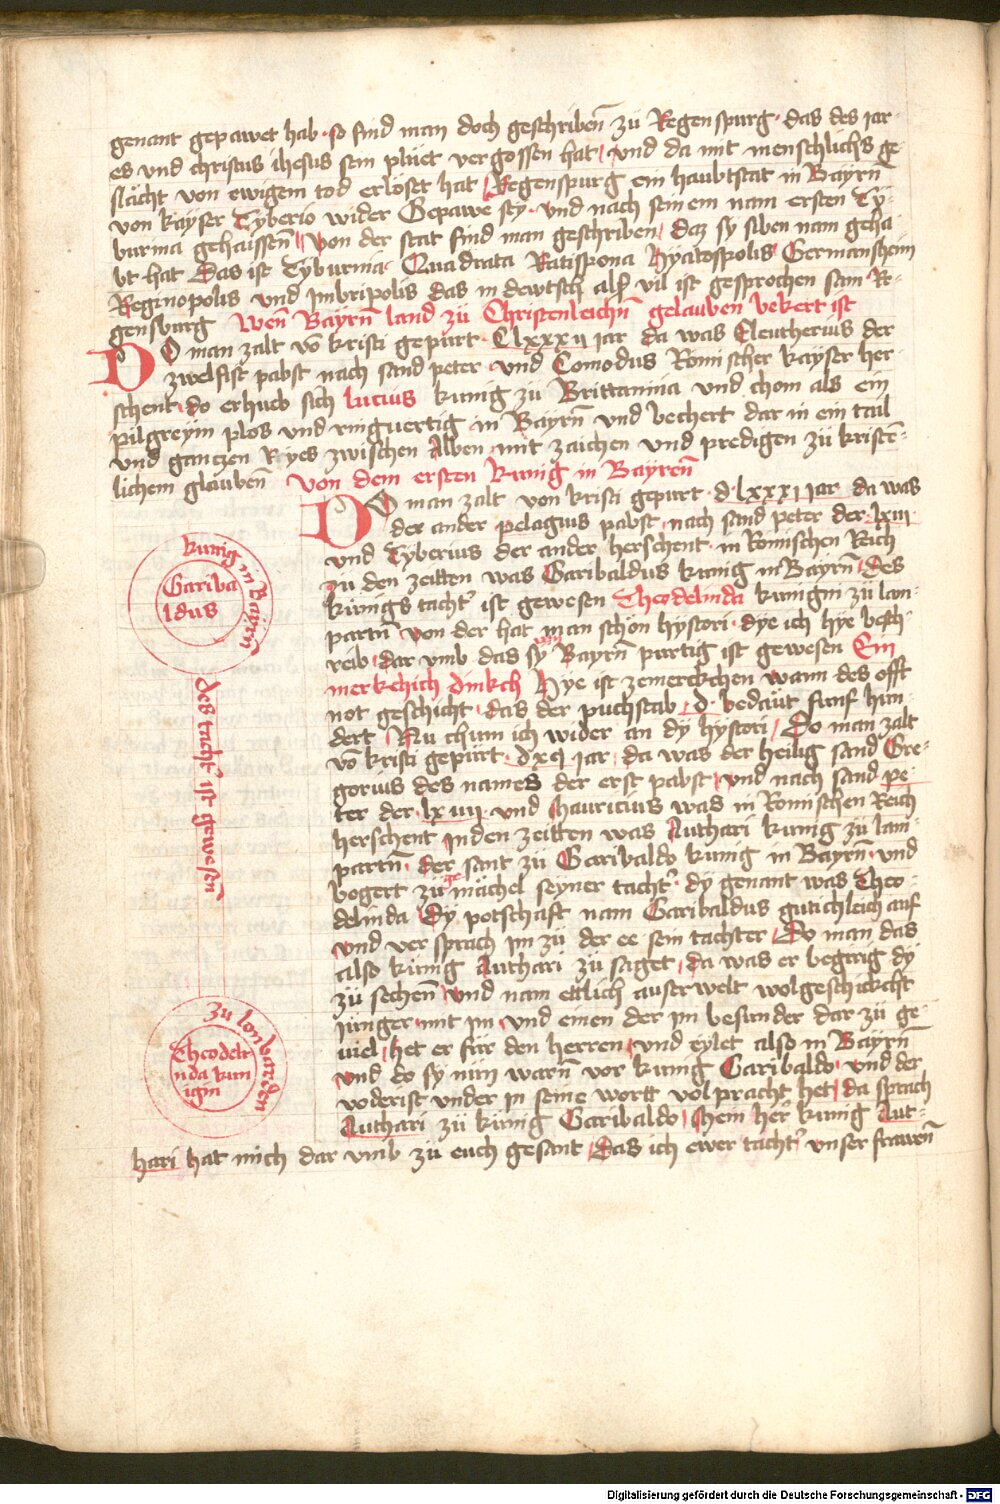 genant gepawet hab · so find man doch geschribeñ zů Regenspurg · das des jar-
es und christus ihesus sein plůet vergossen hat / und da mit menschlichs ge
slächt von ewigem tod erlöset hat / Regenspurg ein haubtstat in Bayrñ
von kayser Tyberio wider Gepawe sey · und nach seinem nam ersten Ty-
burnia gehaisseñ / Von der stat find man geschriben / daz sy siben nam geha
bt hat Das ist Tyburnia · Quadrata Ratispona Hyatospolis Germansheim
Reginopolis und Jmbripolis das in dewtsch als vil ist gesprochen sam · Re-
gensburg Weñ Bayrñ land zů Christenleichñ gelauben bekert ist
DO man zalt võ kristi gepurt · Clxxxij jar da was Eleutherius der
zwelfist pabst nach sand peter · und Comodus Römischer kayser her-
schent · do erhueb sich lucius kunig zů Brittannia und chom als ein
pilgreym plos und ringuertig in Bayrñ und bechert dar in ein tail
und ganczen Ryes zwischen Alben mit zaichen und predigen zů kristē-
lichem glaubeñ Von dem ersten kunig in Bayreñ
DO man zalt von kristi gepurt · d · lxxxj jar da was
der ander pelagius pabst · nach sand peter der · lxiij ·
und Tyberius der ander herschent · in Römischen Rich
zu den zeitten was Garibaldus kunig in Bayrñ · Des
künigs tacht' ist gewesen Theodelinda kunigin zů lan-
partñ von der hat man schon hystori · dye ich hye besch-
reib · dar umb das sy von Bayrñ purtig ist gewesen Ein
merkchich dinkch Hye ist zemerckchen wann des offt
not geschicht · das der puchstab · d · bedäut funf hun
dert · Nu chum ich wider an dy hystori / Do man zalt
võ kristi gepurt · dxcj jar · da was der heilig sand Gre-
gorius des names der erst pabst · und nach sand pe
ter der · lxiiij · und Mauricius was in Römischen Reich
herschent in den zeitten was Authari kunig zů lam-
partñ · der sant zů Garibaldo kunig in Bayrñ · und
bogert zů mächel seyner tacht' · dy genant was Theo-
delinda / Dy potschaft nam Garibaldus gutichleich auf
und ver sprach im zů der ee sein tachter / Do man das
also künig Authari zů saget / da was er begirig dy
zů secheñ / und nam ettlich auserwelt wolgeschickcht
jünger · mit im · und einen der im besunder dar zů ge
uiel / het er für den herren / und eylet also in Bayrñ
und do sy nun warñ vor kunig Garibaldo · und der
voderist under in seine wortt volpracht het / da sprach
Authari zů künig Garibaldo / Mein her' kunig Aut-
hari hat mich dar umb zů euch gesant / Das ich ewer tacht' unser fraweñ
kunig in Bayrñ
Gariba
ldus
des tacht' ist geweseñ
zu lonbarden
Theodeli
nda kun
igin
Digitalisierung gefördert durch die Deutsche Forschungsgemeinschaft - DFG